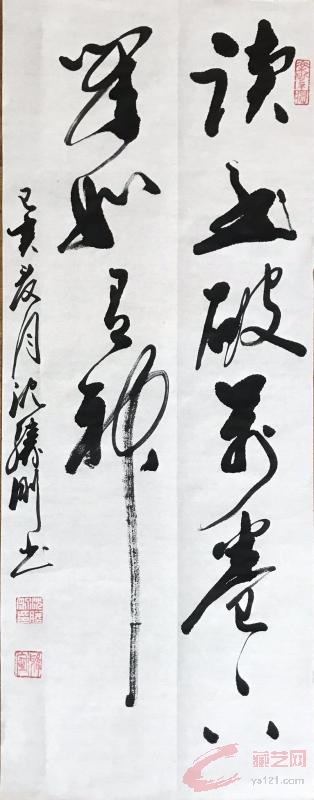 读书破萬卷下
筆如有神
己亥月沈勝刚书
藏艺网
ys121.com